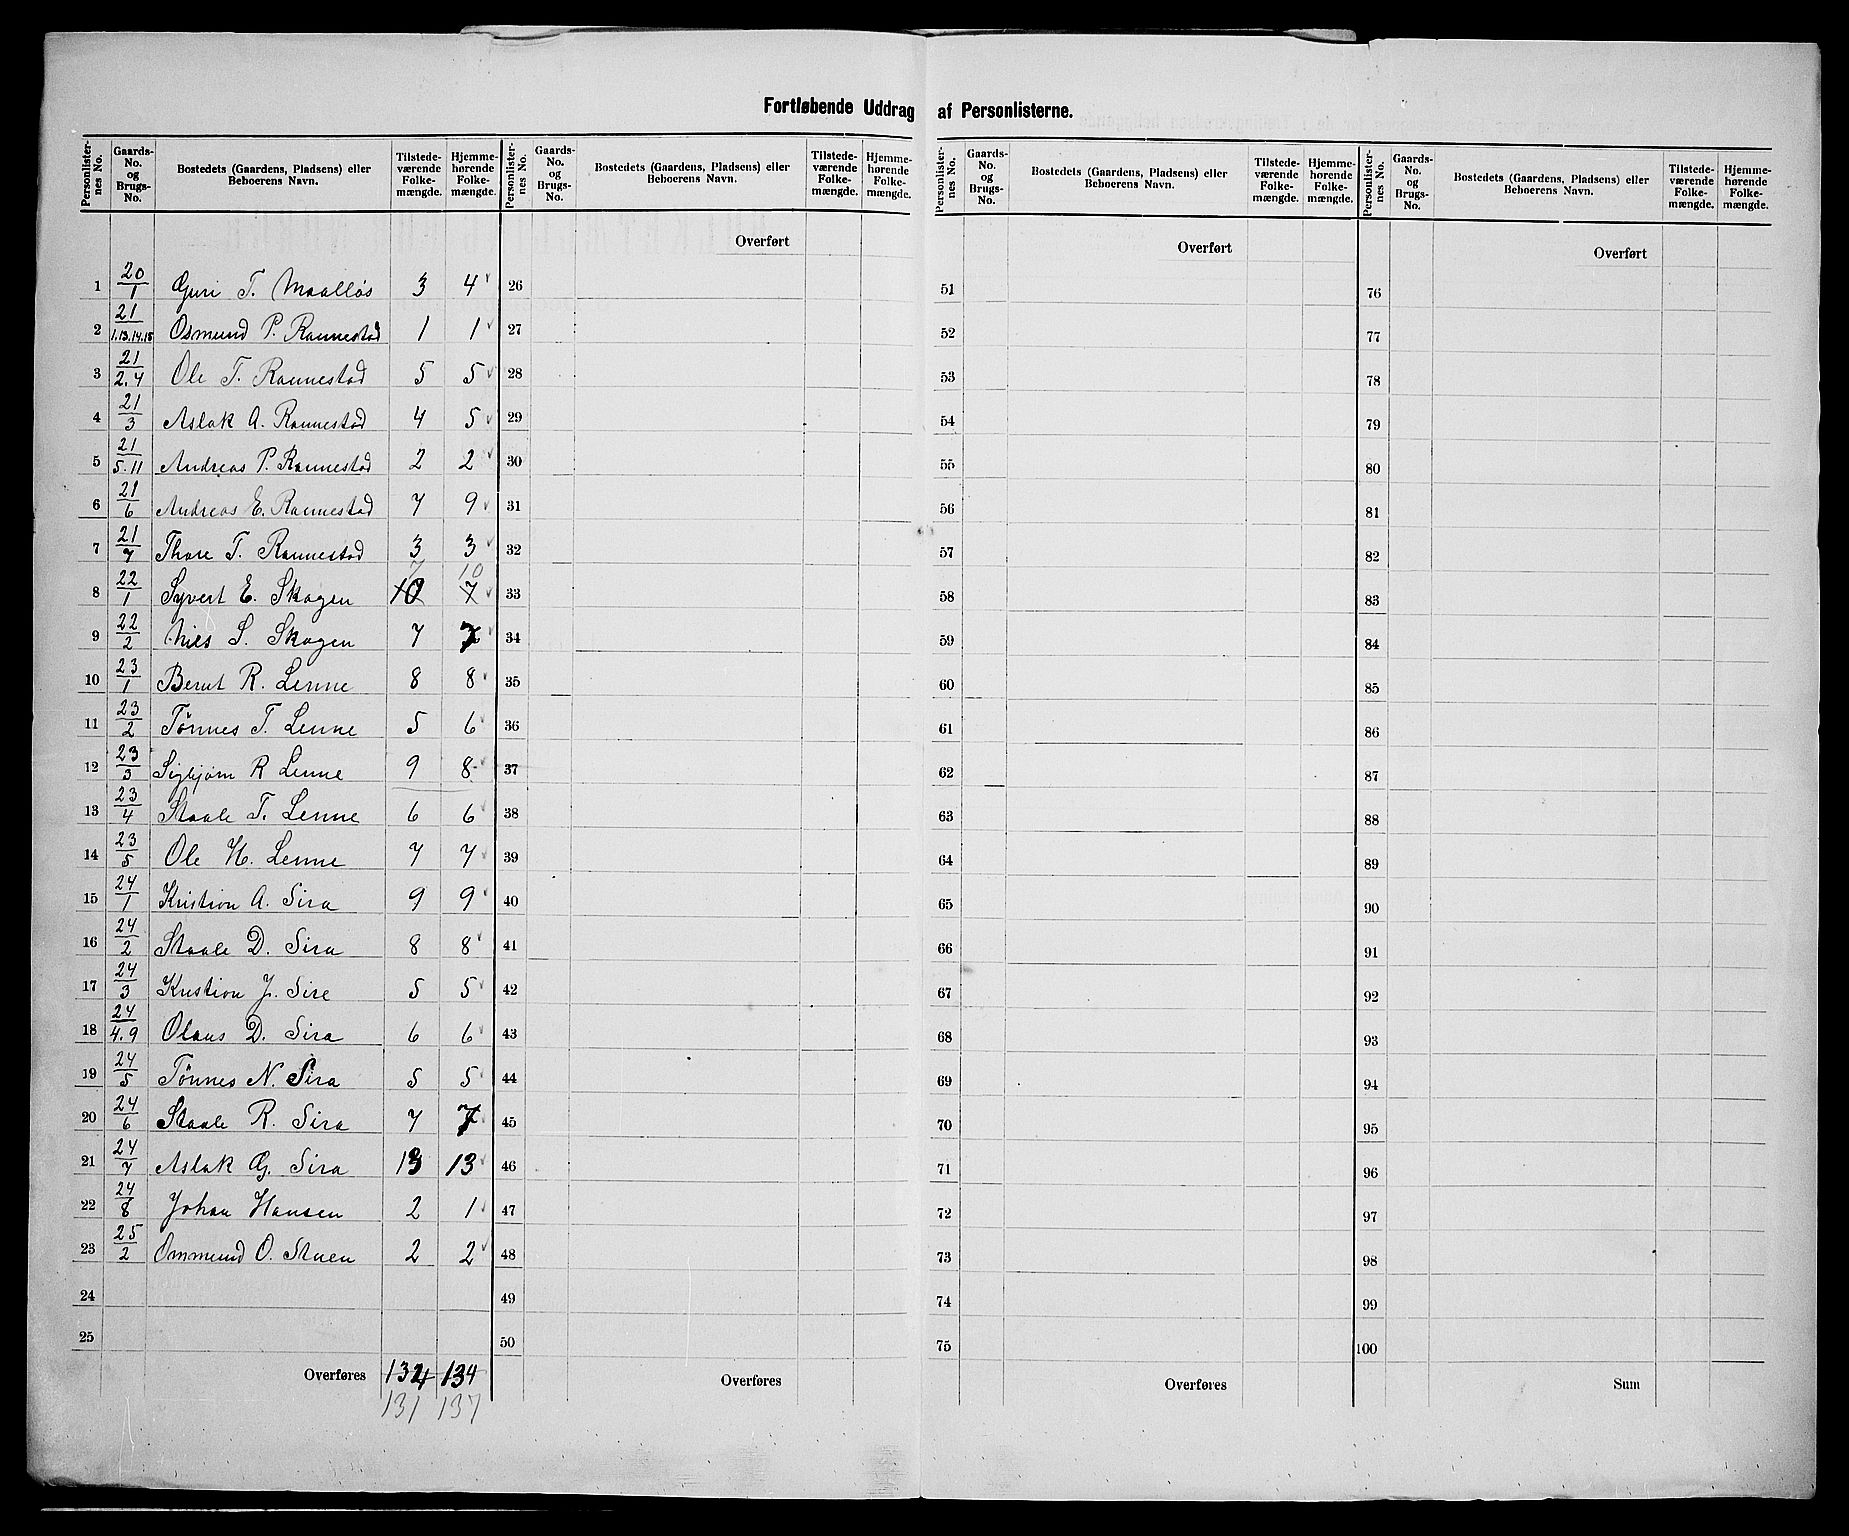 Fortløbende Uddrag af Personlisterne.
Personlisternes No. | Gaards-No. og Brugs-No. | Bostedets (Gaardens, Pladsens) eller Beboerens Navn. | Tilstedeværende Folkemængde. | Hjemmehørende Folkemængde.
Personlisternes No. | Gaards-No. og Brugs-No. | Bostedets (Gaardens, Pladsens) eller Beboerens Navn. | Tilstedeværende Folkemængde. | Hjemmehørende Folkemængde.
Personlisternes No. | Gaards-No. og Brugs-No. | Bostedets (Gaardens, Pladsens) eller Beboerens Navn. | Tilstedeværende Folkemængde. | Hjemmehørende Folkemængde.
Personlisternes No. | Gaards-No. og Brugs-No. | Bostedets (Gaardens, Pladsens) eller Beboerens Navn. | Tilstedeværende Folkemængde. | Hjemmehørende Folkemængde.
Overført Overført Overført
1 20/1 Guri T. Maalløs 3 4 26 51 76
2 21/1.13.14.15 Osmund P. Rannestad 1 1 27 52 77
3 21/2.4 Ole T. Rannestad 5 5 28 53 78
4 21/3 Aslak A. Rannestad 4 5 29 54 79
5 21/5.11 Andreas P. Rannestad 2 2 30 55 80
6 21/6 Andreas E. Rannestad 7 9 31 56 81
7 21/7 Thore T. Rannestad 3 3 32 57 82
7 10
8 22/1 Syvert E. Skogen 10 7 33 58 83
9 22/2 Nils S. Skogen 7 7 34 59 84
10 23/1 Berut R. Lenne 8 8 35 60 85
11 23/2 Tønnes T. Lenne 5 6 36 61 86
12 23/3 Sigbjørn R Lenne 9 8 37 62 87
13 23/4 Staale T. Lenne 6 6 38 63 88
14 23/5 Ole H. Lenne 7 7 39 64 89
15 24/1 Kristian A. Sira 9 9 40 65 90
16 24/2 Staale D. Sira 8 8 41 66 91
17 24/3 Kristian J. Sire 5 5 42 67 92
18 24/4.9 Olaus D. Sira 6 6 43 68 93
19 24/5 Tønnes N. Sira 5 5 44 69 94
20 24/6 Staale R. Sira 7 7 45 70 95
21 24/7 Aslak G. Sira 13 13 46 71 96
22 24/8 Johan Hansen 2 1 47 72 97
23 25/2 Ommund O. Stuen 2 2 48 73 98
24 49 74 99
25 50 75 100
Overføres 134 134 Overføres Overføres Sum
131 137